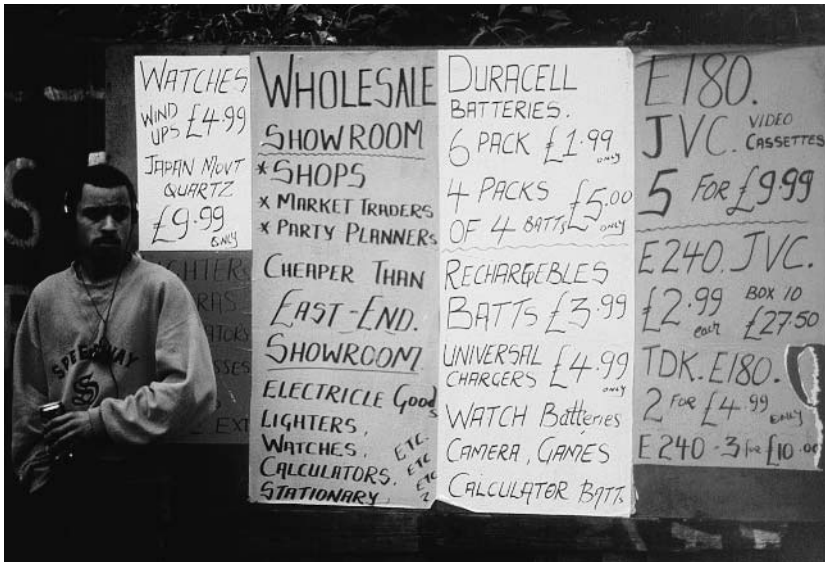 WATCHES
WIND UPS £4.99
JAPAN MOVT
QUARTZ
£9.99
ONLY
WHOLESALE
SHOWROOM
* SHOPS
x MARKET TRADERS
* PARTY PLANNERS
CHEAPER THAN
EAST-END.
SHOWROOM
ELECTRICLE GOODS
LIGHTERS, ETC.
WATCHES, ETC
CALCULATORS. ETC
STATIONARY,
DURACELL
BATTERIES.
6 PACK £1.99
ONLY
4 PACKS £5.00
OF 4 BATTS ONLY
RECHARGEBLES
BATTS £3.99
UNIVERSAL
CHARGERS £4.99
ONLY
WATCH Batteries
CAMERA, GAMES
CALCULATOR BATTS
E180.
JVC. VIDEO CASSETTES
5 FOR £9.99
E240. JVC.
£2.99 each
BOX 10
£27.50
TDK. E180.
2 FOR £4.99
ONLY
E240 - 3 for £10.00
SPEEDWAY
S